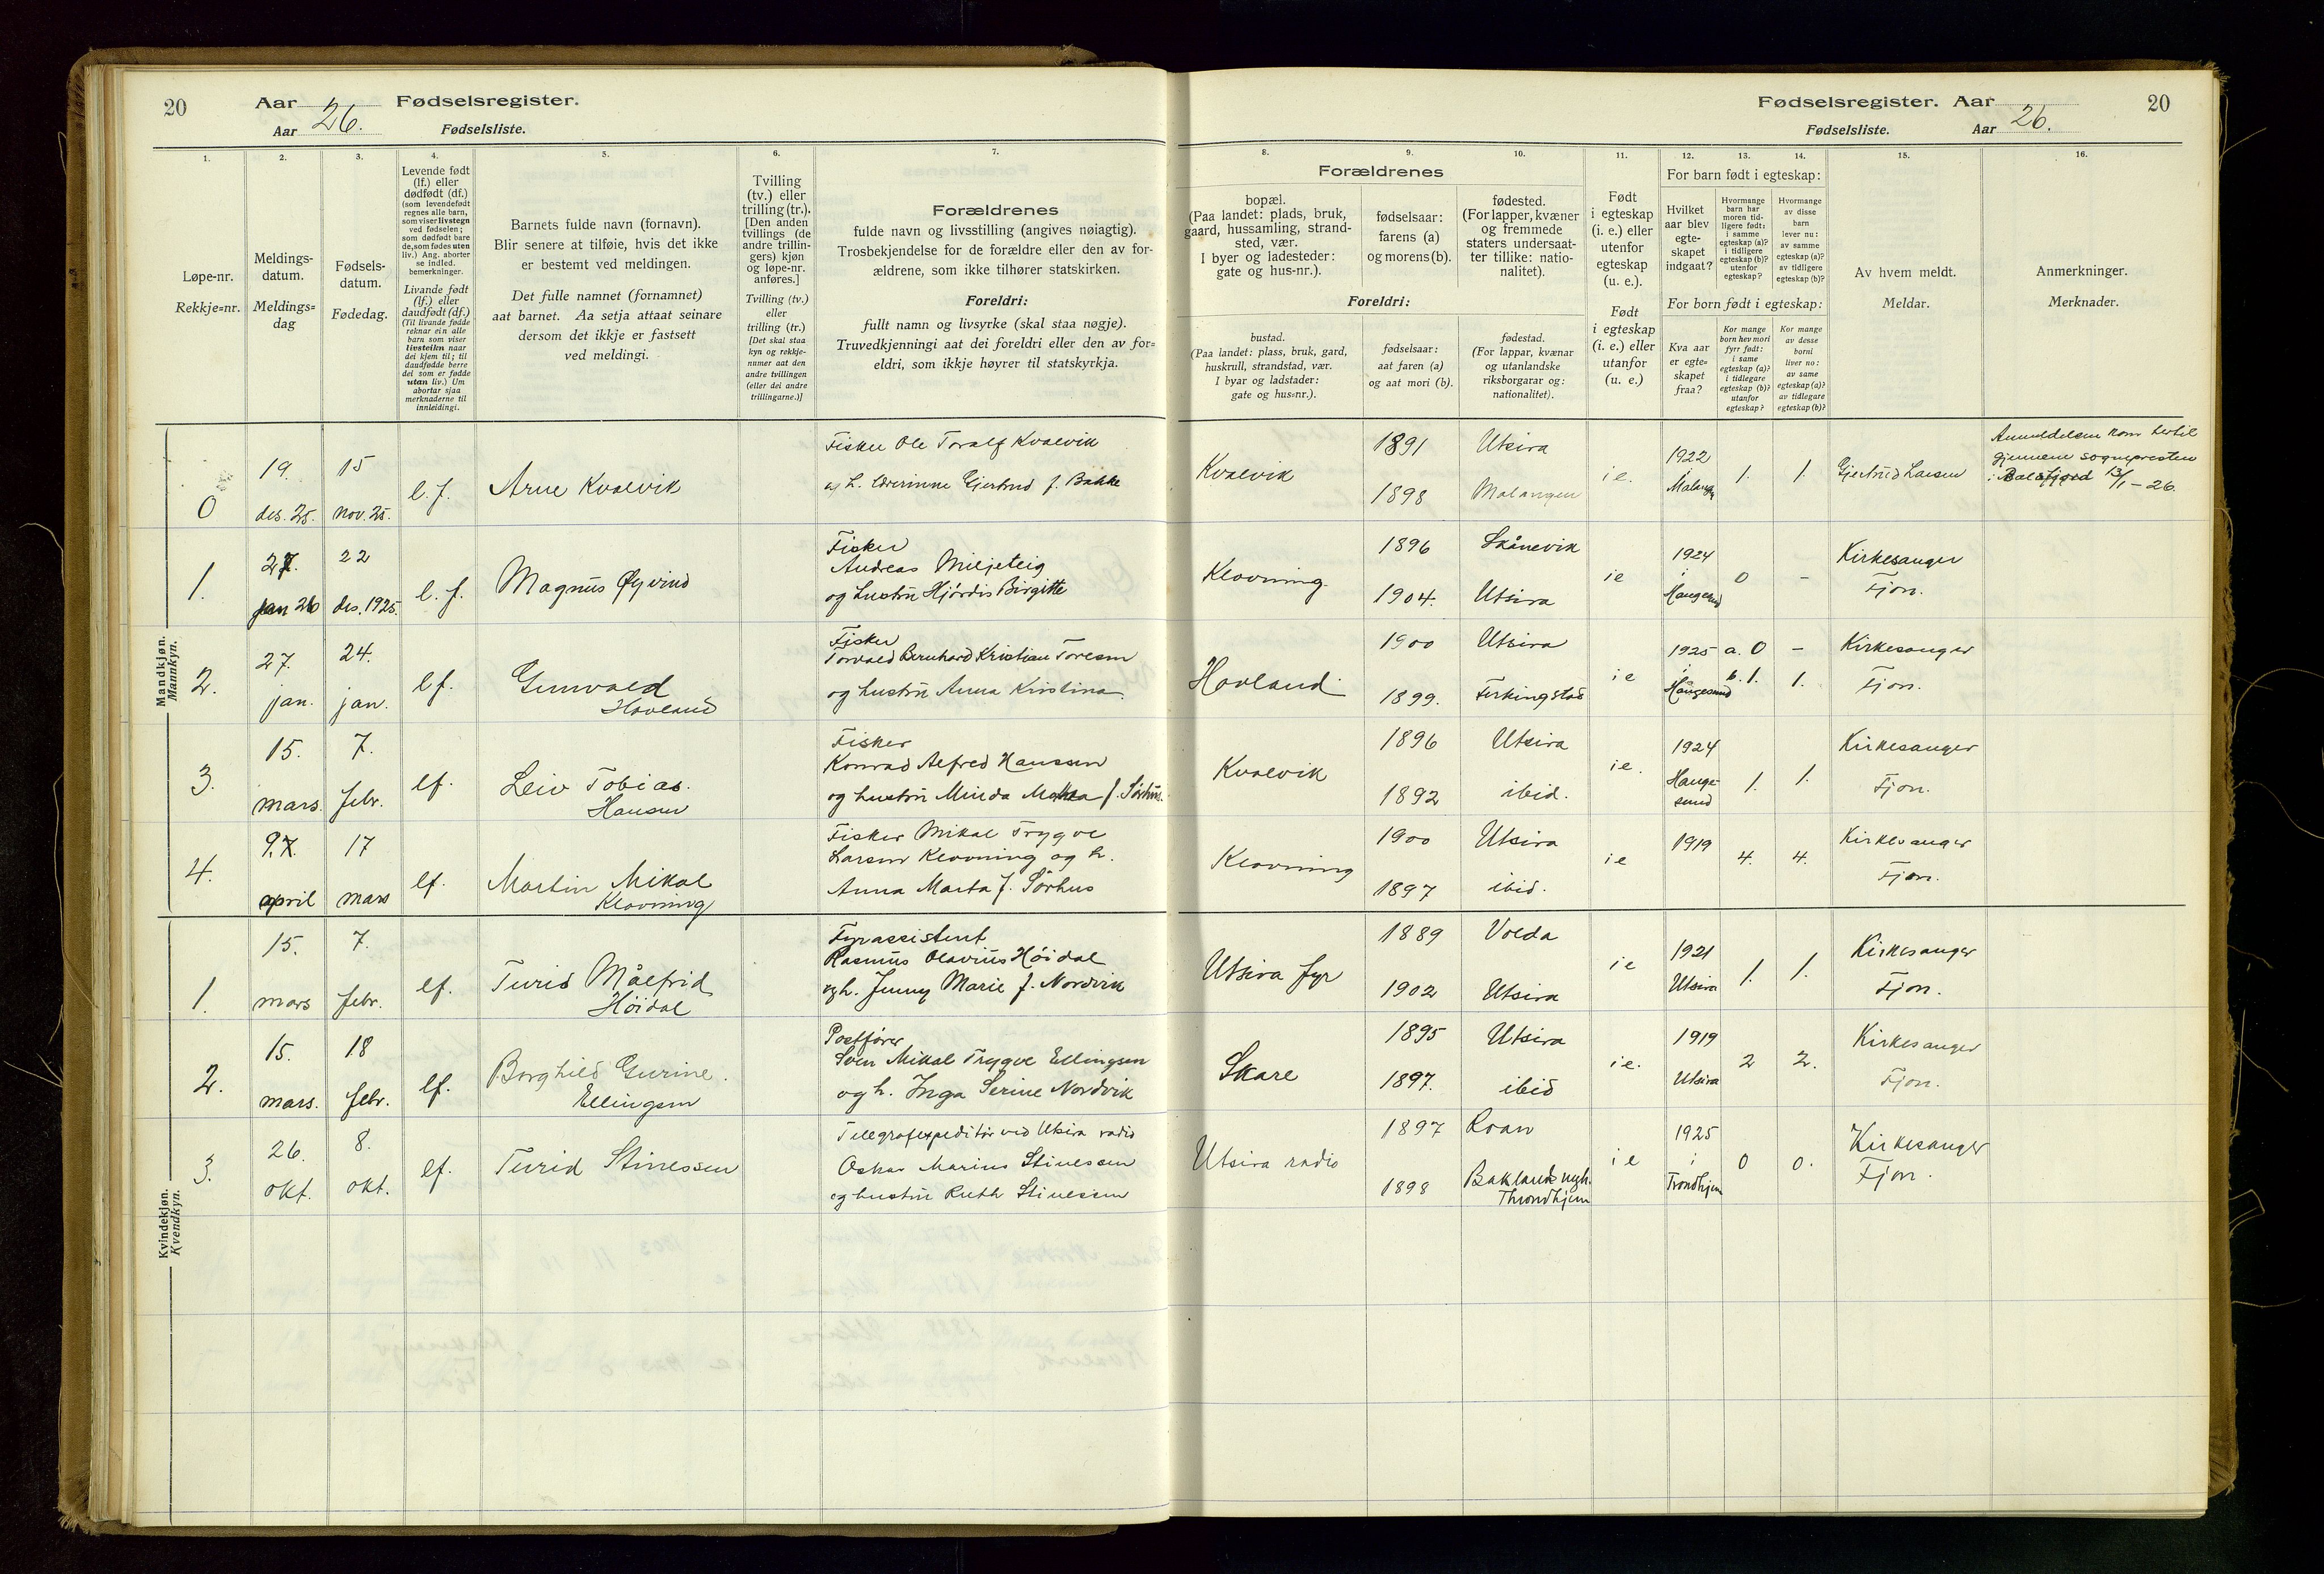 20 Aar Fødselsregister.
Aar 26. Fødselsliste.
Fødselsregister. Aar 20
Fødselsliste. Aar 26.
1.
Løpe-nr.
Rekkje=nr.
2.
Meldings-
datum.
Meldings=
dag
3.
Fødsels-
datum.
Fødedag.
4.
Levende født
(lf.) eller
dødfødt (df.)
(som levendefødt
regnes alle barn,
som viser livstegn
ved fødselen;
som dødfødt bare
de, som fødes uten
liv.) Ang. aborter
se indled.
bemerkninger.
Livande født
(lf.) eller
daudfødt (df.)
(Til livande fødde
reknar ein alle
barn som viser
livsteikn naar
dei kjem til; til
daudfødde berre
dei som er fødde
utan liv.) Um
abortar sjaa
merknaderne til
innleidingi.
5.
Barnets fulde navn (fornavn).
Blir senere at tilføie, hvis det ikke
er bestemt ved meldingen.
Det fulle namnet (fornamnet)
aat barnet. Aa setja attaat seinare
dersom det ikkje er fastsett
ved meldingi.
6.
Tvilling
(tv.) eller
trilling (tr.).
[Den anden
tvillings (de
andre trillin-
gers) kjøn
og løpe-nr.
anføres.]
Tvilling (tv.)
eller
trilling (tr.)
[Det skal staa
kyn og rekkje-
numer aat den
andre tvillingen
(eller dei andre
trillingarne.)]
7.
Forældrenes
fulde navn og livsstilling (angives nøiagtig).
Trosbekjendelse for de forældre eller den av for-
ældrene, som ikke tilhører statskirken.
Foreldri:
fullt namn og livsyrke (skal staa nøgje).
Truvedkjenningi aat dei foreldri eller den av for=
eldri, som ikkje høyrer til statskyrkja.
Forældrenes
8.
bopæl.
(Paa landet: plads, bruk,
gaard, hussamling, strand-
sted, vær.
I byer og ladesteder:
gate og hus-nr.).
9.
fødselsaar:
farens (a)
og morens (b).
10.
fødested.
(For lapper, kvæner
og fremmede
staters undersaat-
ter tillike: natio-
nalitet).
Foreldri:
bustad.
(Paa landet: plass, bruk, gard,
huskrull, strandstad, vær.
I byar og ladstader:
gate og hus=nr.).
fødselsaar:
aat faren (a)
og aat mori (b).
fødestad.
(For lappar, kvænar
og utanlandske
riksborgarar og:
nationalitet).
11.
Født
i egteskap
(i. e.) eller
utenfor
egteskap
(u. e.).
Født
i egteskap
(i. e.) eller
utanfor
(u. e.)
For barn født i egteskap:
12.
Hvilket
aar blev
egte-
skapet
indgaat?
13.
Hvormange
barn har
moren tid-
ligere født:
i samme
egteskap (a)?
i tidligere
egteskap (b)?
utenfor
egteskap?
14.
Hvormange
av disse
barn
lever nu:
av samme
egteskap (a)?
av tidligere
egteskap (b)?
For born født i egteskap:
Kva aar
er egte=
skapet
fraa?
Kor mange
born hev mori
fyrr født:
i same
egteskap (a)?
i tidlegare
egteskap (b)?
utanfor
egteskap?
Kor mange
av desse
borni
liver no:
av same
egteskap (a)?
av tidlegare
egteskap (b)?
15.
Av hvem meldt.
Meldar.
16.
Anmerkninger.
Merknader.
Mandkjøn.
Mannkyn.
0 19. des. 25. 15 nov. 25. l. f. Arne Kvalvik
Fisker Ole Toralf Kvalvik
Gjertrud f. Bakke
Kvalvik 1891 Utsira
1898 Malangen
i e. 1922 i Malangen 1. 1. Gjertrud Larsen
Anmeldelsen kom hertil
gjennem sognepresten
i Balsfjord 13/1 - 26.
1. 27. jan 26 22 des. 1925. l. f. Magnus Øyvind
Fisker
Andreas Miljeteig
og hustru Hjørdis Birgitte
Klovning. 1896 Skånevik
1904. Utsira
i e 1924 i Haugesund 0 - Kirkesanger
Fjon.
2. 27. jan. 24. jan. lf. Gunvald
Hovland
Fisker
Torvald Bernhard Kristian Toresen
og hustru Anna Kristina
Hovland 1900 Utsira
1899. Ferkingstad
i e 1925 i Haugesund a. 0 - b. 1. 1. Kirkesanger
Fjon.
3. 15. mars. 7. febr. lf. Leiv Tobias.
Hansen
Fisker
Konrad Alfred Hanssen
og hustru Minda f. Sørhus.
Kvalvik 1896 Utsira
1892 ibid.
i e. 1924 Hauge-
sund 1. 1. Kirkesanger
Fjon.
4. 9. april 17 mars lf. Martin Mikal
Klovning
Fisker Mikal Trygve
Larsen Klovning og h.
Anna Marta f. Sørhus
Klovning 1900 Utsira
1897 ibid.
i e 1919 4. 4. Kirkesanger
Fjon.
Kvindekjøn.
Kvendkyn.
1. 15. mars 7. febr. lf. Turid Målfrid
Höidal
Fyrassistent
Rasmus Olavius Höidal
og h. Jenny Marie f. Nordvik
Utsira fyr 1889 Volda
1902 Utsira
i e 1921 Utsira 1. 1. Kirkesanger
Fjon.
2. 15. mars. 18 febr. lf. Borghild Gurine.
Ellingsen
Postfører
Sven Mikal Trygve Ellingsen
og h. Inga Serine Nordvik
Skare 1895 Utsira
1897. ibid
i e. 1919 Utsira 2 2. Kirkesanger
Fjon.
3. 26. okt. 8. okt. lf. Turid Stinessen
Telegrafexpeditör ved Utsira radio
Oskar Marius Stinessen
og hustru Ruth Stinessen
Utsira radio 1897 Roan
1898 Baklandet
Throndhjem
i e 1925 i Trondhjem 0 0. Kirkesanger
Fjon.